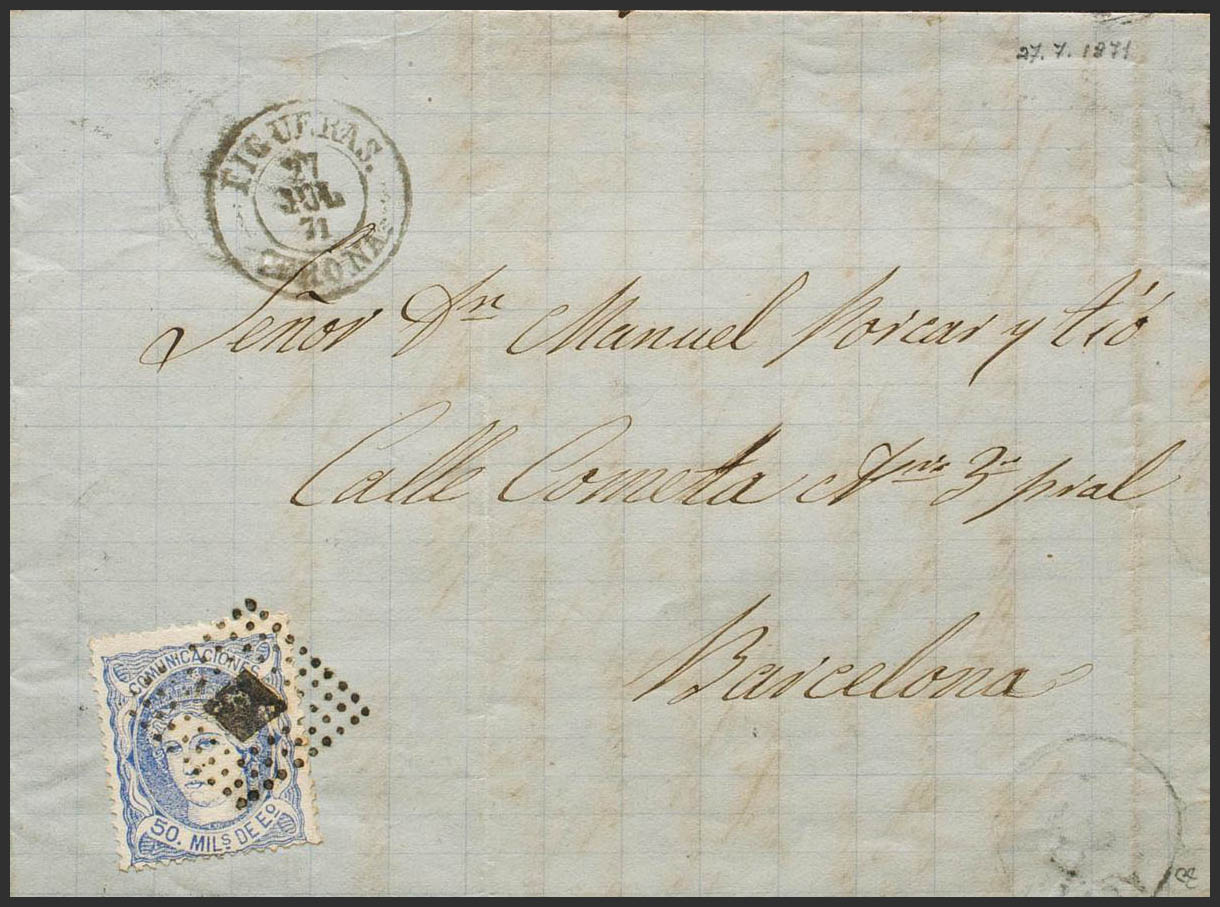 27. 7. 1871
FIGUERAS.
27
JUL
71
GERONA
Señor Dn Manuel Porcar y tió
Calle Cometa Nro 3 pral
Barcelona
COMUNICACIONES
50. MILS DE Eo